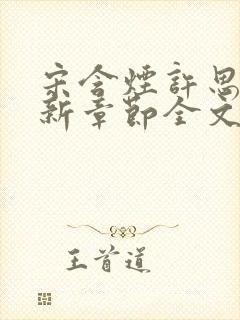 宋含煙許思
新章節全文
王首道